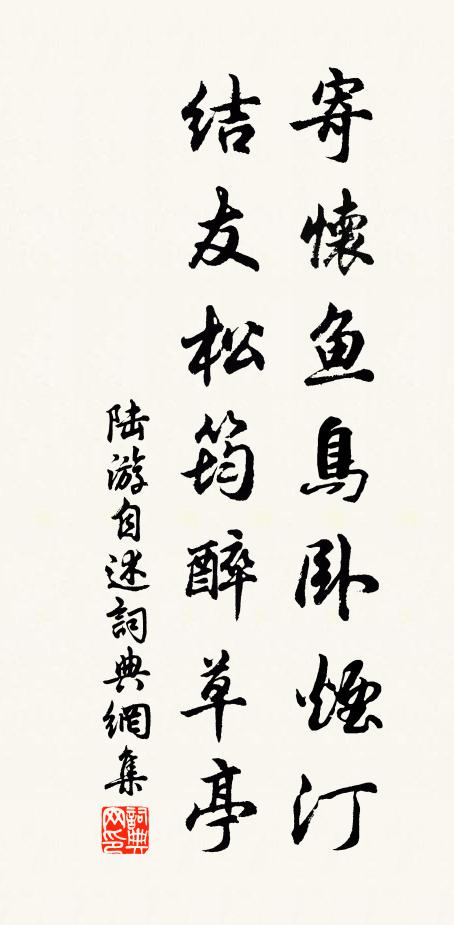 寄懷鱼鳥卧煙汀
结友松筠醉草亭
陆游自述詞典網集
詞典
网印